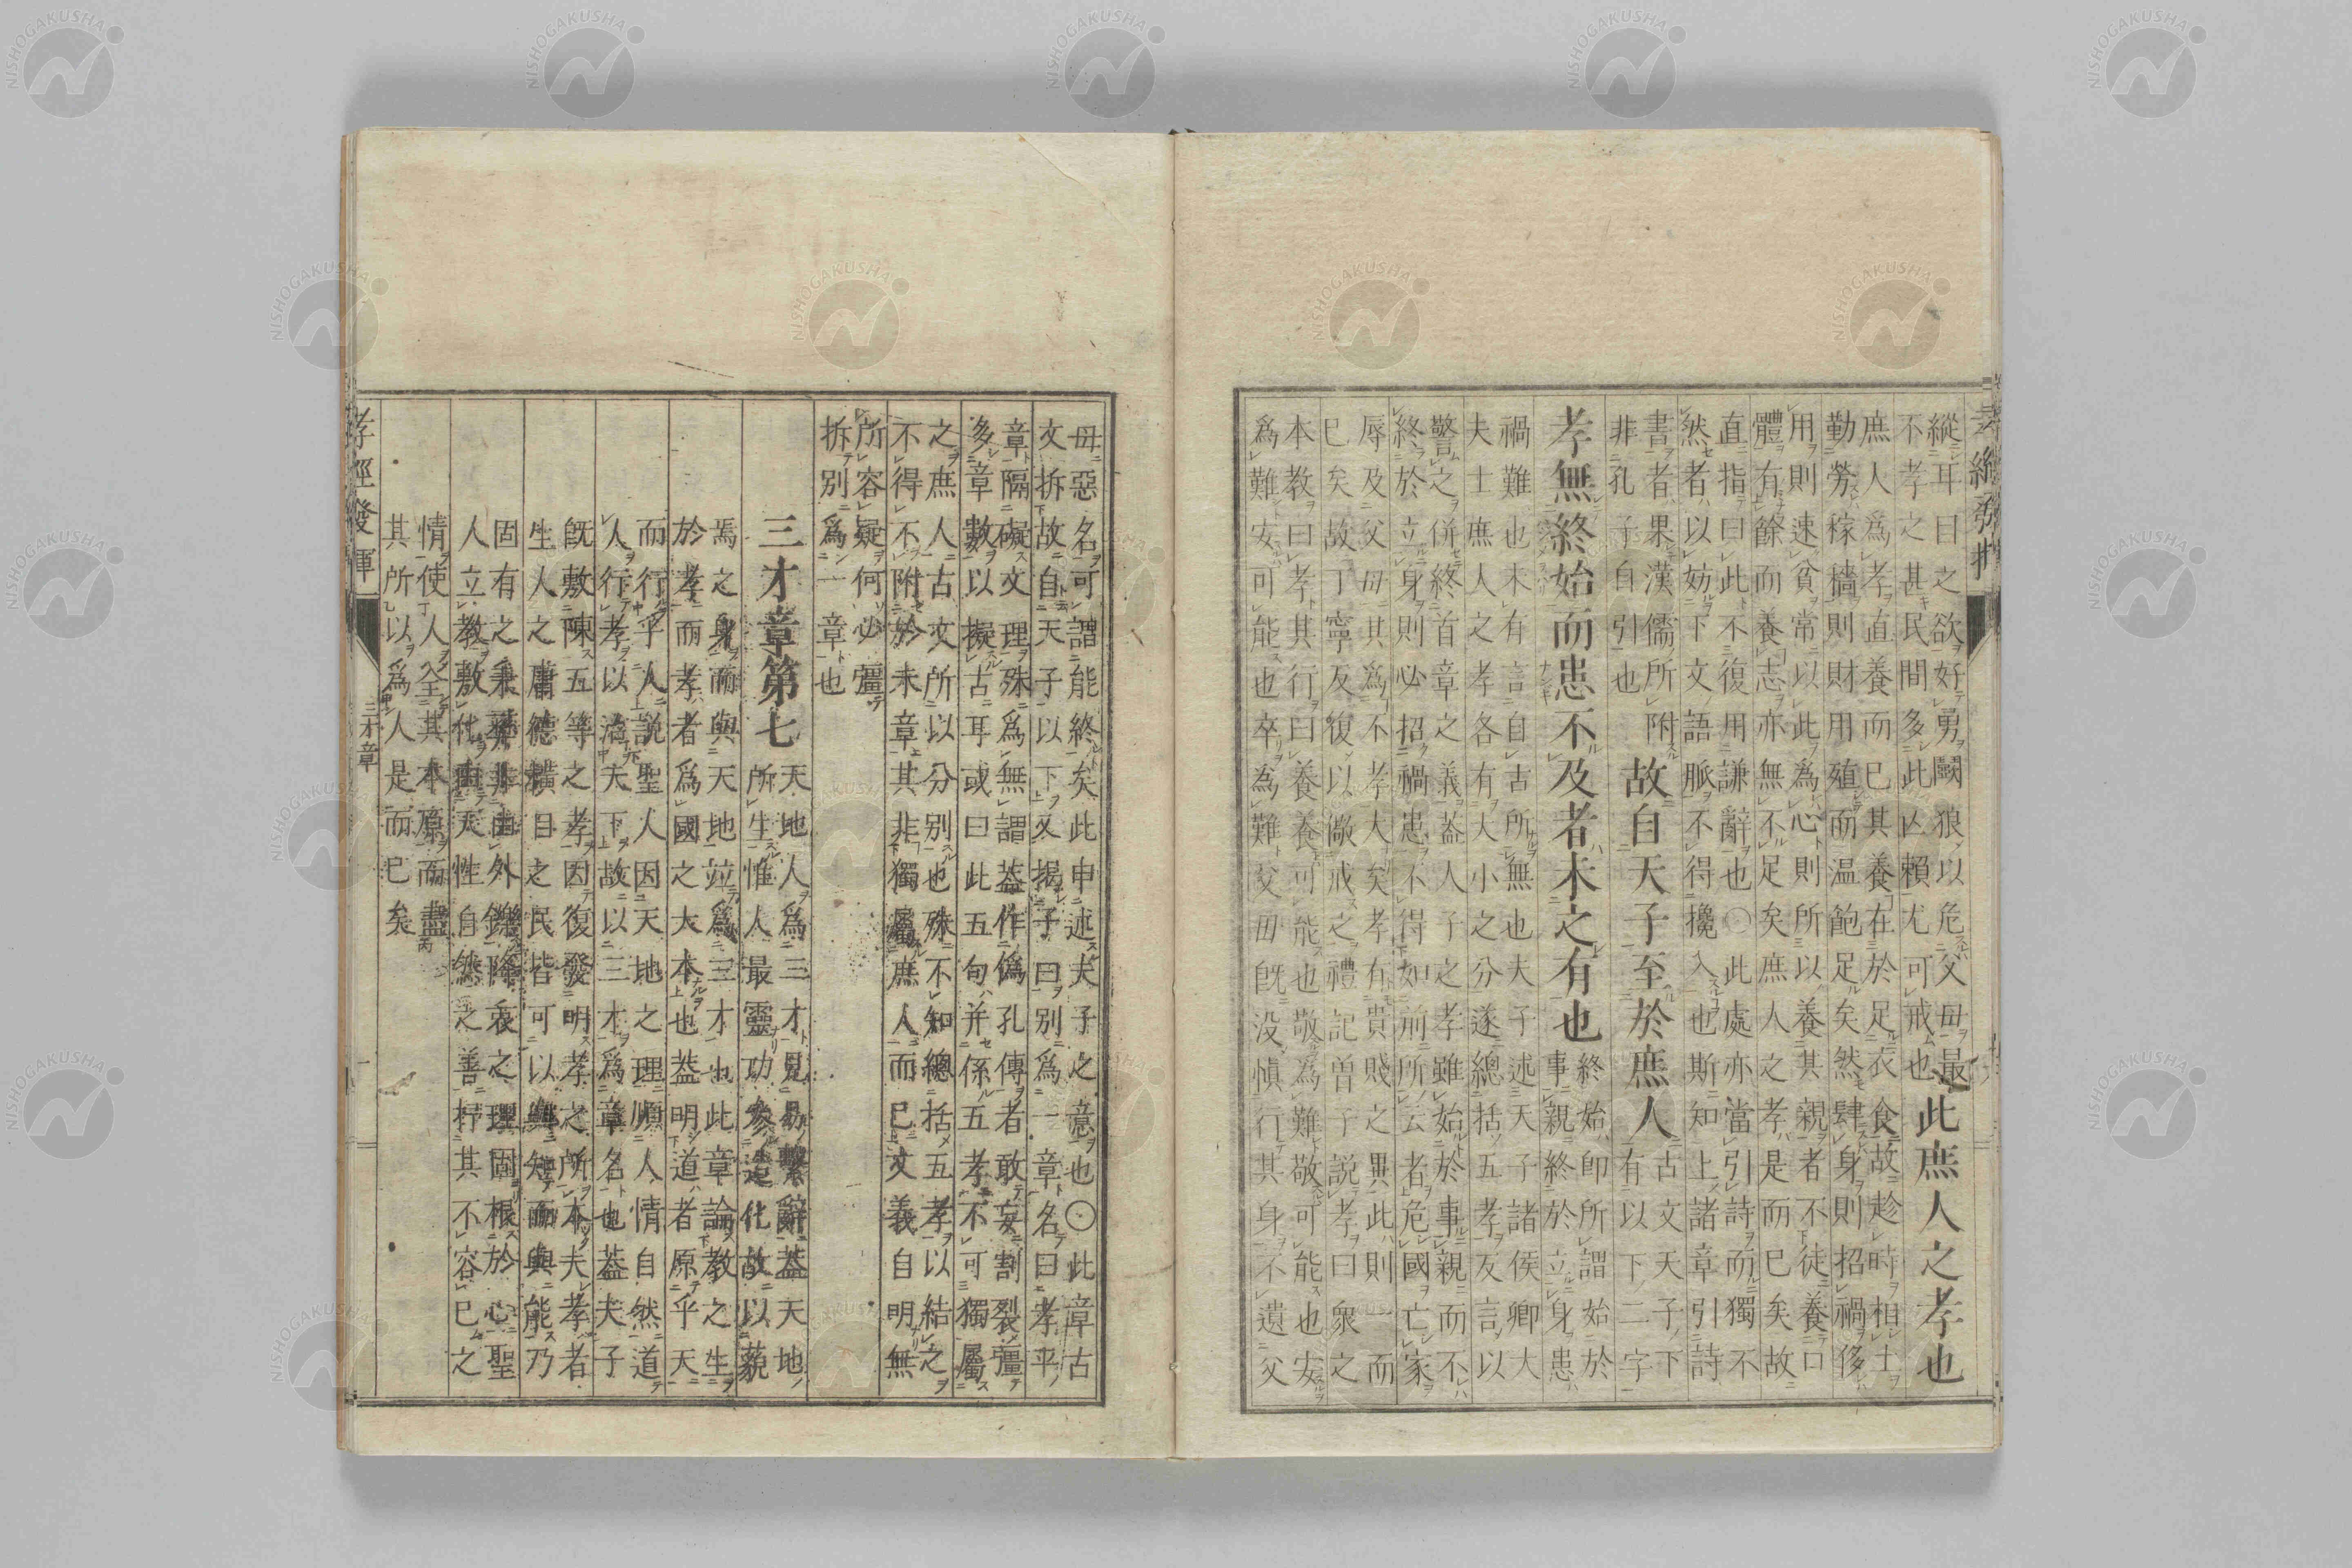 縱耳目之欲好勇鬭狼以危父母最
不孝之甚民間多此凶賴尤可戒也
此庶人之孝也
庶人爲孝直養而已其養在於足衣食故趁時相土
勤勞稼穡則財用殖而温飽足矣然肆身則招禍侈
用則速貧常以此爲心則所以養其親者不徒養口
體有餘而養志亦無不足矣庶人之孝是而已矣故
直指曰此不復用謙辭也〇此處亦當引詩而獨不
然者以妨下文語脈不得攙入也斯知上諸章引詩
書者果漢儒所附
非孔子自引也
故自天子至於庶人
古文天子下
有以下二字
孝無終始而患不及者未之有也
終始即所謂始於
事親終於立身患
禍難也未有言自古所無也夫子述天子諸侯卿大
夫士庶人之孝各有大小之分遂總括五孝反言以
警之併終首章之義蓋人子之孝雖始於事親而不
終於立身則必招禍患不得如前所云者危國亡家
辱及父母其爲不孝大矣孝有貴賤之異此則一而
已矣故丁寧反復以儆戒之禮記曽子説孝曰衆之
本教曰孝其行曰養養可能也敬爲難敬可能也安
爲難安可能也卒為難父母旣没愼行其身不遺父
母惡名可謂能終矣此申述夫子之意也〇此章古
文拆故自天子以下又揭子曰別爲一章名曰孝平
章隔礙文理殊爲無謂蓋作僞孔傳者敢妄割裂彊
多章數以擬古耳或曰此五句并係五孝不可獨屬
之庶人古文所以分別也殊不知總括五孝以結之
不得不附於末章其非獨屬庶人而已文義自明無
所容疑何必彊
拆別爲一章也
三才章第七
天地人爲三才見易繫辭蓋天地
所生惟人最靈功參造化故以藐
焉之身而與天地竝爲三才也此章論教之生
於孝而孝者爲國之大本也蓋明道者原乎天
而行乎人説聖人因天地之理順人情自然道
人行孝以治天下故以三才爲章名也蓋夫子
旣敷陳五等之孝因復發明孝之所本夫孝者
生人之庸德横目之民皆可以與知而與能乃
固有之秉彝非由外鑠降衷之理固根於心聖
人立教敷化由天性自然之善而其不容已之
情使人全其本原而盡
其所以爲人是而已矣
孝經發揮
三才章